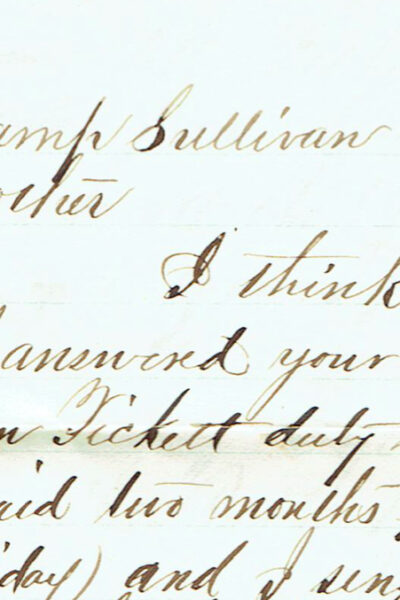 amp Sullivan
other
I think
answered your
n Tickett duty
aid two months
day) and I sen